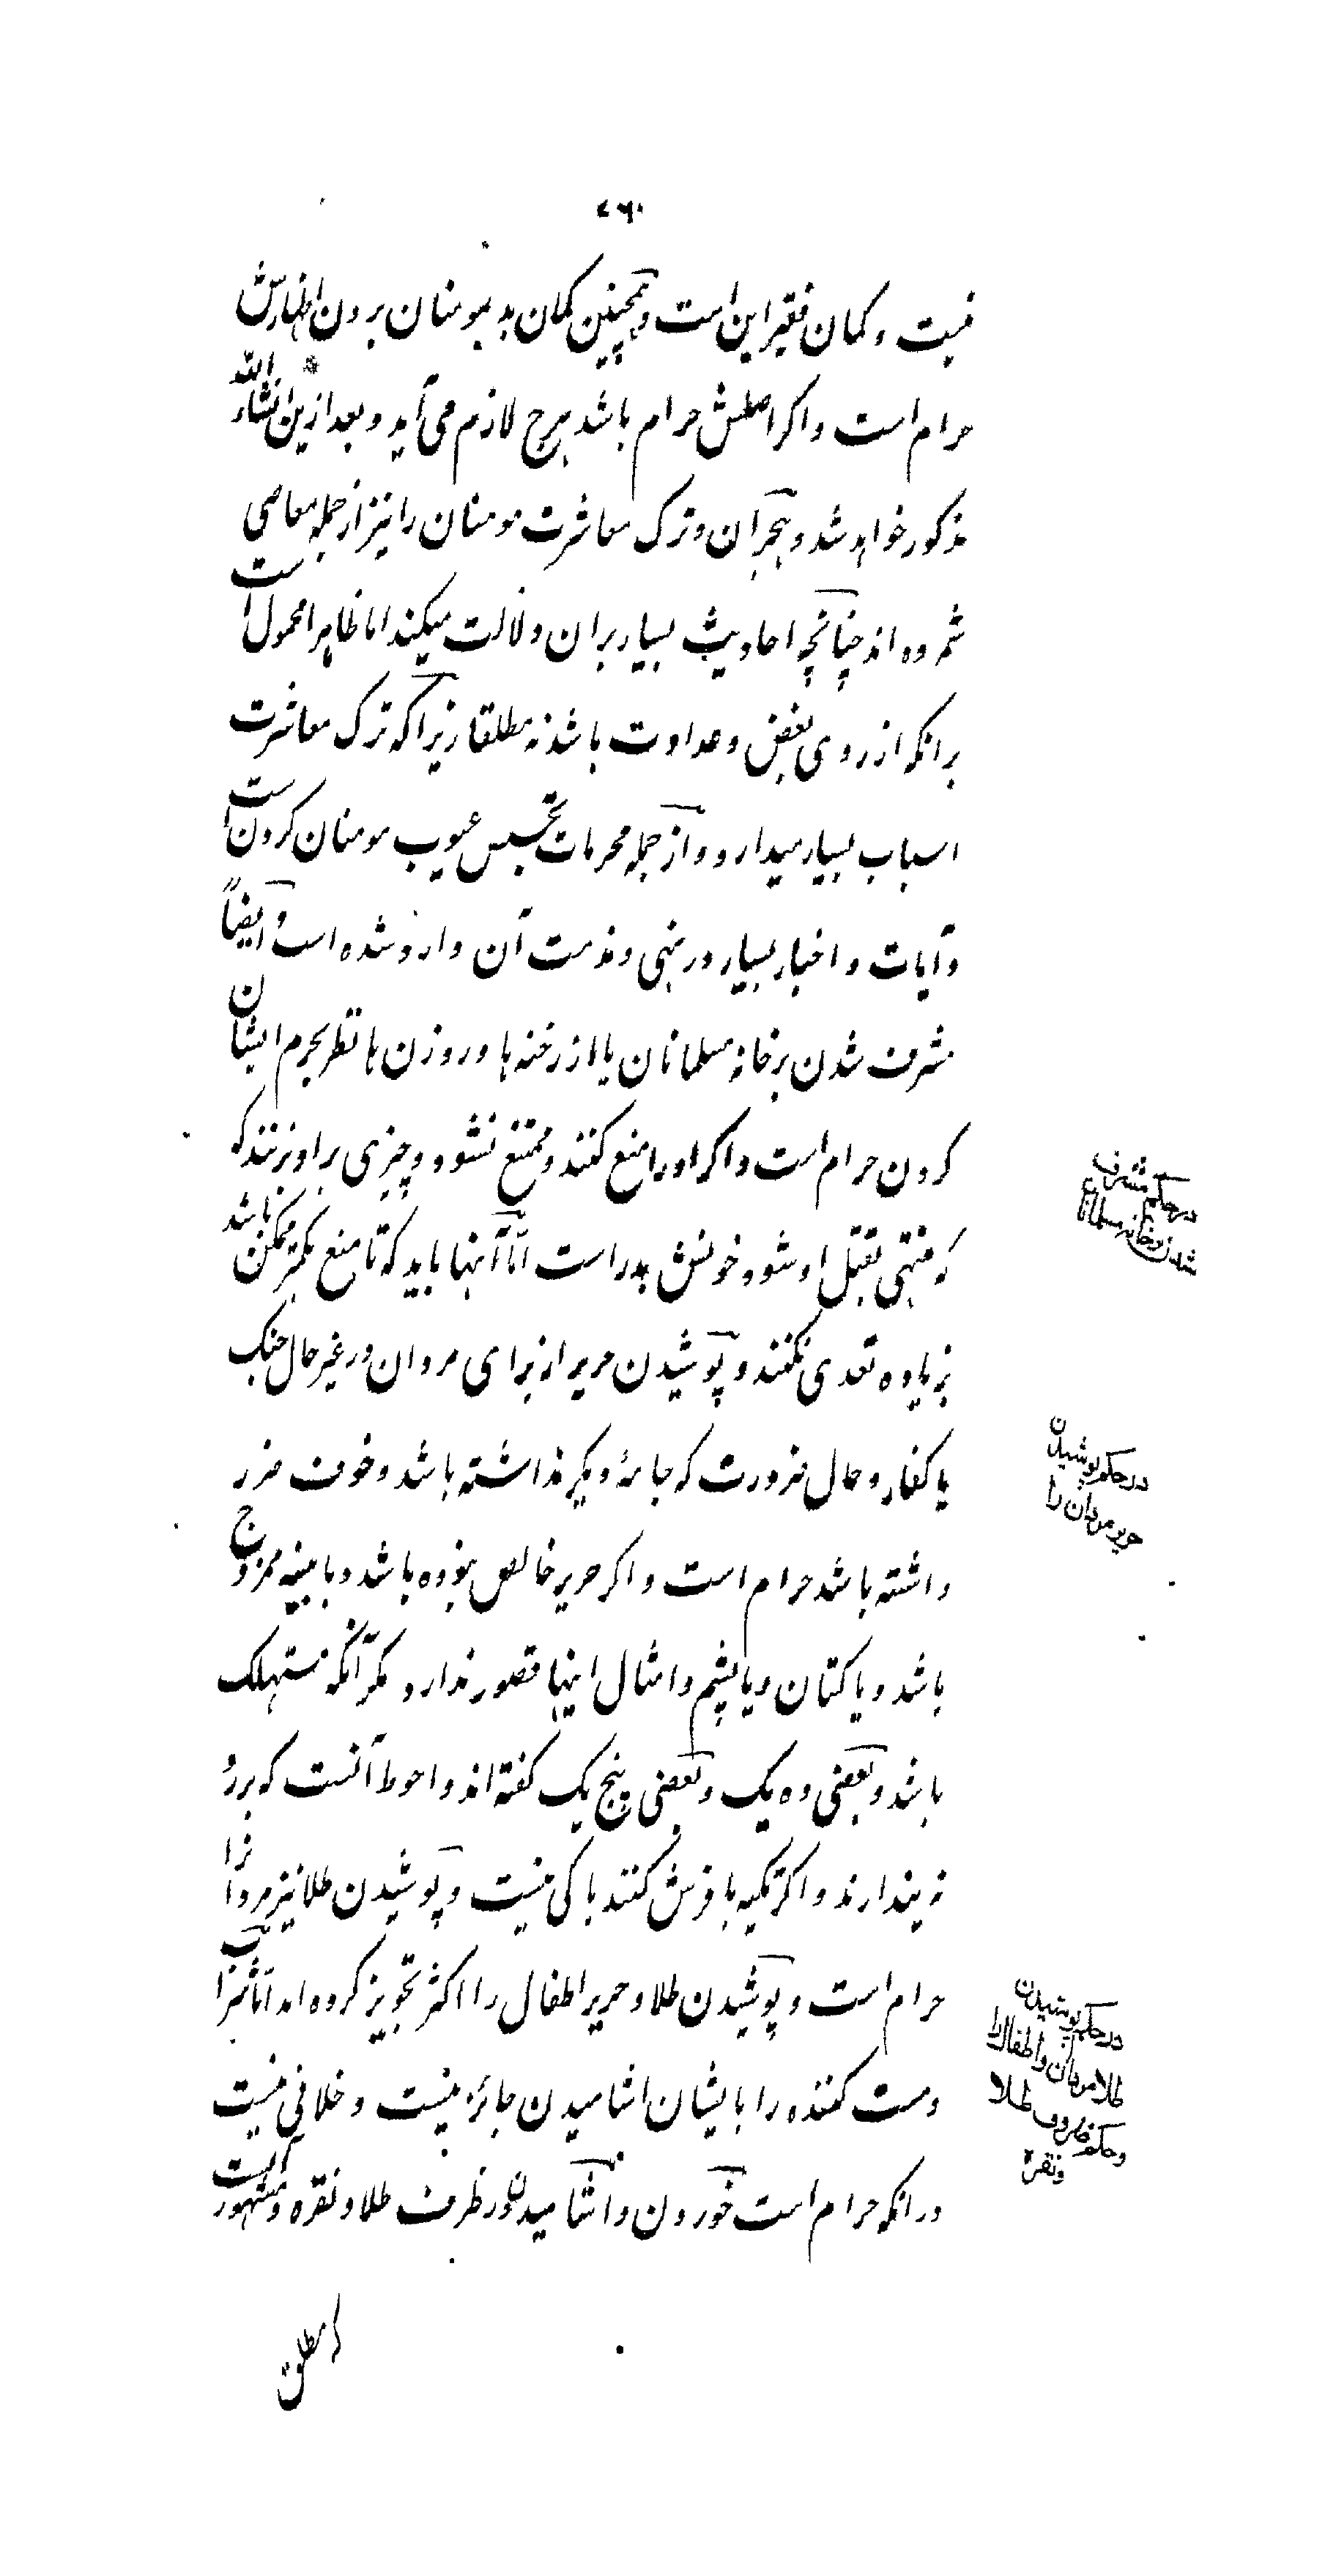 ۲۶۰
نیست و گمان فقیر این است و همچنین گمان بد بمومنان بردن اظهارش
حرام است و اگر اصلش حرام باشد حرج لازم می آید و بعد ازین انشاء الله
مذکور خواهد شد و هجران و ترک معاشرت مومنان را نیز از جمله معاصی
شمرده اند چنانچه احادیث بسیار بران دلالت میکند اما ظاهرا محمول است
برانکه از روی بغض و عداوت باشد نه مطلقا زیرا که ترک معاشرت
اسباب بسیار میدارد و از جمله محرمات تجسس عیوب مومنان کردن است
و آیات و اخبار بسیار در نهی و مذمت آن وارد شده است و ایضاً
مشرف شدن بر خانه مسلمانان یا از رخنه ها و روزن ها نظر بحرم ایشان
کردن حرام است و اگر او را منع کنند و ممتنع نشود و چیزی بر او بزنند که
که منتهی بقتل او شود خونش هدر است امّا آنها باید که تا منع بکمتر ممکن باشد
بزیاده تعدی نکنند و پوشیدن حریر از برای مردان در غیر حال جنک
با کفار و حال ضرورت که جامۀ دیگر نداشته باشد و خوف ضرر
داشته باشد حرام است و اگر حریر خالص نبوده باشد و با پنبه ممزوج
باشد و یا کتان و یا پشم و امثال اینها قصور ندارد مگر آنکه مستهلک
باشد و بعضی ده یک و بعضی پنج یک گفته اند و احوط آنست که بر رُ
نه یندارند و اگر تکیه یا فرش کنند باکی نیست و پوشیدن طلا نیز مردانرا
حرام است و پوشیدن طلا و حریر اطفال را اکثر تجویز کرده اند امّا شراب
و مست کننده را بایشان اشامیدن جائز نیست و خلافی نیست
درانکه حرام است خوردن و اشامیدن در ظرف طلا و نقره و مشهور آنست
که مطلق
در حکم مشرف
شدن بر خانه مسلمانان
در حکم پوشیدن
حریر مردان را
در حکم پوشیدن
طلا مردان و اطفال را
و حکم ظروف طلا
و نقره